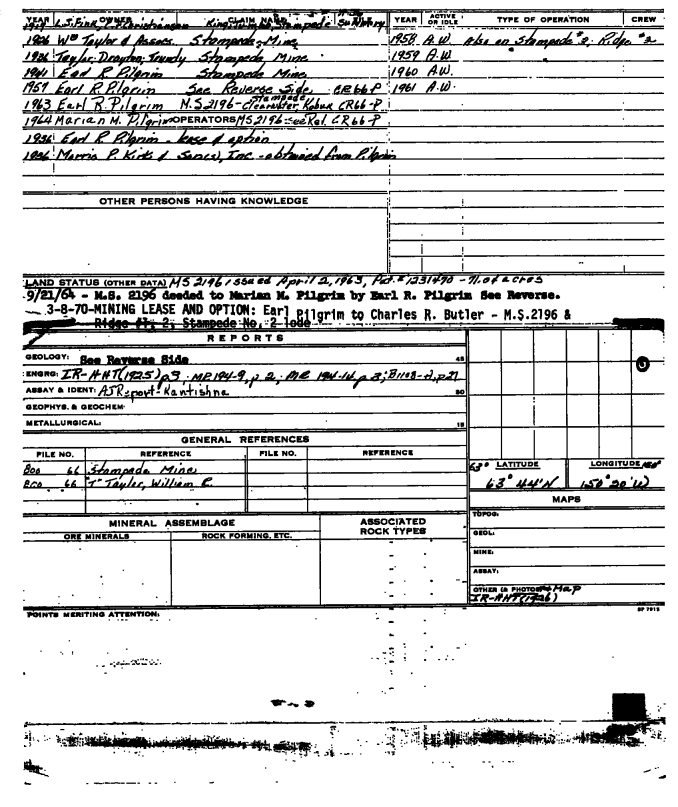 YEAR OWNER CLAIM NAME YEAR ACTIVE OR IDLE TYPE OF OPERATION CREW
L.S. Fink King, Stampede
1926 Wm Taylor & Assocs. Stampede Mine 1958 A.W. Also on Stampede #2; Ridge #2
1926 Taylor, Drayton, Trundy Stampede Mine 1959 A.W.
1941 Earl R Pilgrim Stampede Mine 1960 A.W.
1957 Earl R Pilgrim See Reverse Side CR66-P 1961 A.W.
1963 Earl R. Pilgrim M.S 2196- Stampede, Clearwater, Kobuk CR66-P
1964 Marian M. Pilgrim OPERATORS MS 2196- CR66-P
1936 Earl R Pilgrim - lease & option
1936 Morris P. Kirk & Sons, Inc. - obtained from Pilgrim
OTHER PERSONS HAVING KNOWLEDGE
LAND STATUS (OTHER DATA) MS 2196 issued April 2, 1963, Pat. # 1231470 - 71. of acres
9/21/64 - M.S. 2196 deeded to Marian M. Pilgrim by Earl R. Pilgrim See Reverse.
3-8-70-MINING LEASE AND OPTION: Earl Pilgrim to Charles R. Butler - M.S.2196 &
Ridge #1, 2, Stampede No. 2 lode
REPORTS
GEOLOGY: See Reverse Side 45
ENGRG: IR-AHT(1925) p3, MR 194-9, p 2, MR 194-14 p 3;
ASSAY & IDENT: AJReport-Kantishna 30
GEOPHYS. & GEOCHEM.
METALLURGICAL: 15
GENERAL REFERENCES
FILE NO. REFERENCE FILE NO. REFERENCE
66 Stampede Mine
66 "T" Taylor, William E.
63° LATITUDE LONGITUDE 150°
63° 44'N 150° 20' W
MAPS
TOPOG:
GEOL:
MINE:
ASSAY:
OTHER (& PHOTOS) Map
IR-AHT(1926)
MINERAL ASSEMBLAGE ASSOCIATED ROCK TYPES
ORE MINERALS ROCK FORMING, ETC.
POINTS MERITING ATTENTION: SP 7915